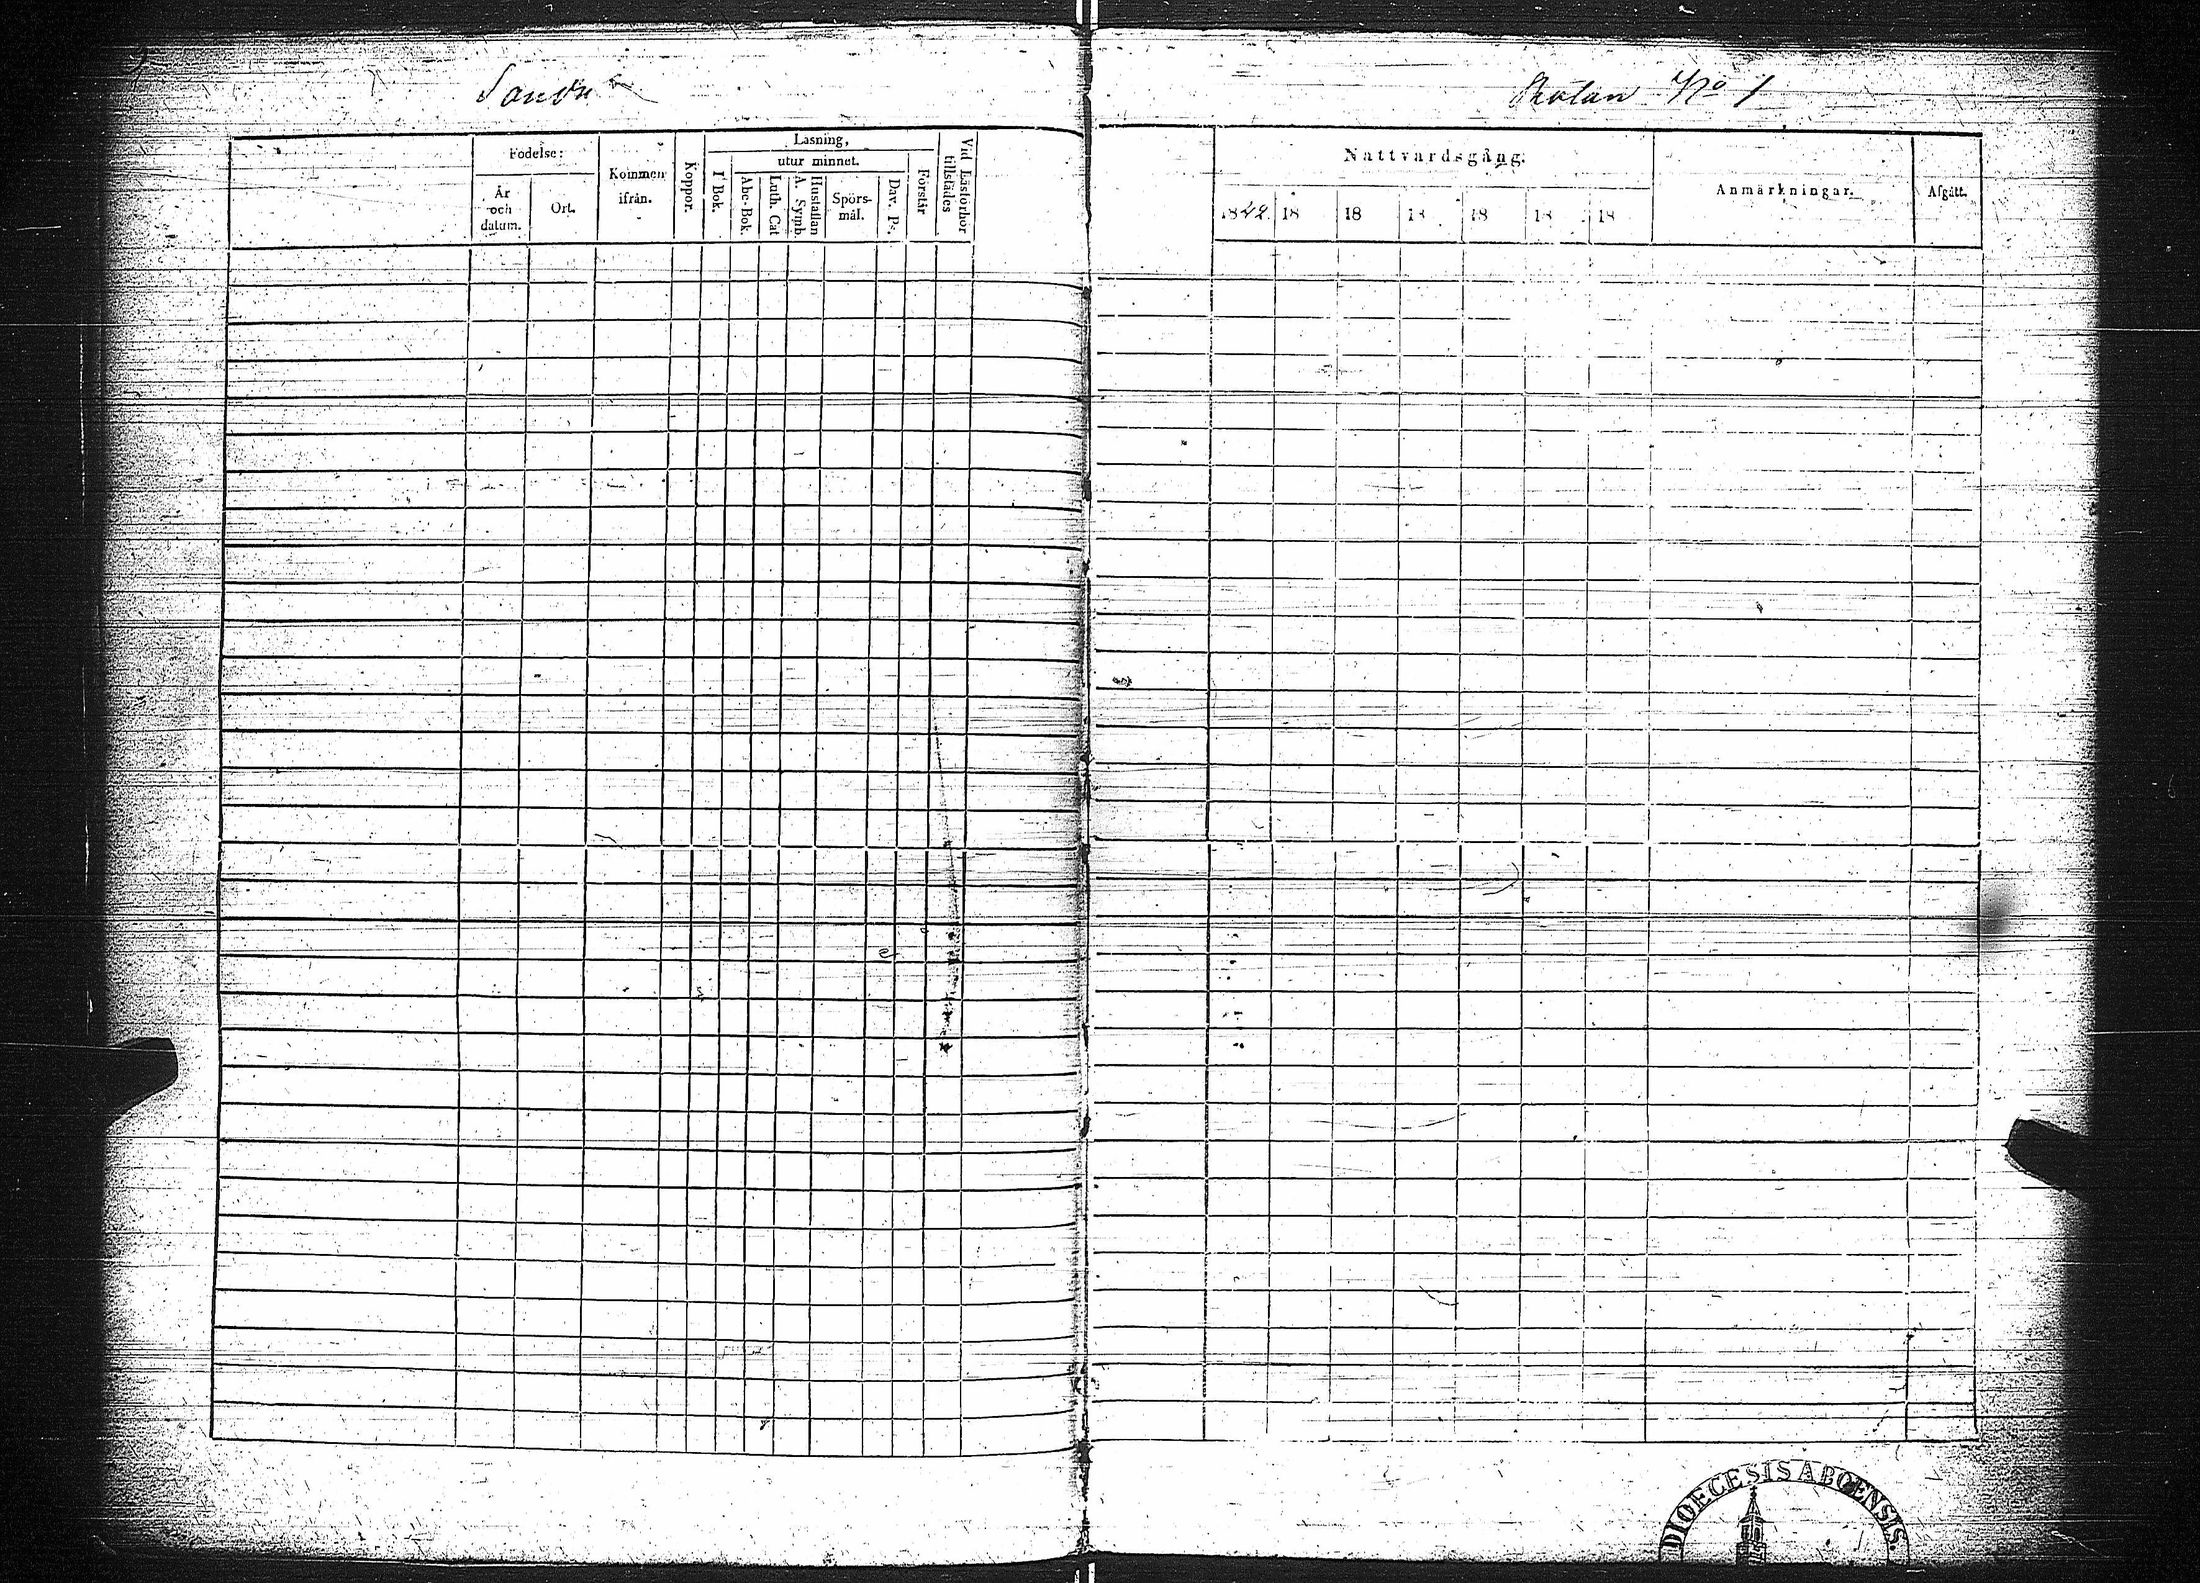 Sandu
Skatan No 1
Födelse:
År
och
datum.
Ort.
Kommen
ifrån.
Koppor.
Läsning,
utur minnet.
I Bok.
Abc-Bok.
Luth. Cat
Hustaflan
A. Symb.
Spörs-
mål.
Dav. Ps.
Förstår
Vid Läsförhör
tillstädes
Nattvardsgång.
1842. 18 18 18 18 18 18
Anmärkningar.
Afgått.
DIOECESIS ABOENSIS.